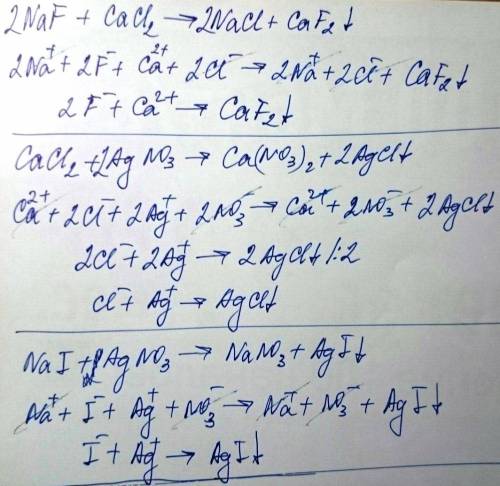 2NaF + CaCl₂ → 2NaCl + CaF₂↓
2Na⁺ + 2F⁻ + Ca²⁺ + 2Cl⁻ → 2Na⁺ + 2Cl⁻ + CaF₂↓
2F⁻ + Ca²⁺ → CaF₂↓
CaCl₂ + 2AgNO₃ → Ca(NO₃)₂ + 2AgCl↓
Ca²⁺ + 2Cl⁻ + 2Ag⁺ + 2NO₃⁻ → Ca²⁺ + 2NO₃⁻ + 2AgCl↓
2Cl⁻ + 2Ag⁺ → 2AgCl↓ /:2
Cl⁻ + Ag⁺ → AgCl↓
NaI + AgNO₃ → NaNO₃ + AgI↓
Na⁺ + I⁻ + Ag⁺ + NO₃⁻ → Na⁺ + NO₃⁻ + AgI↓
I⁻ + Ag⁺ → AgI↓